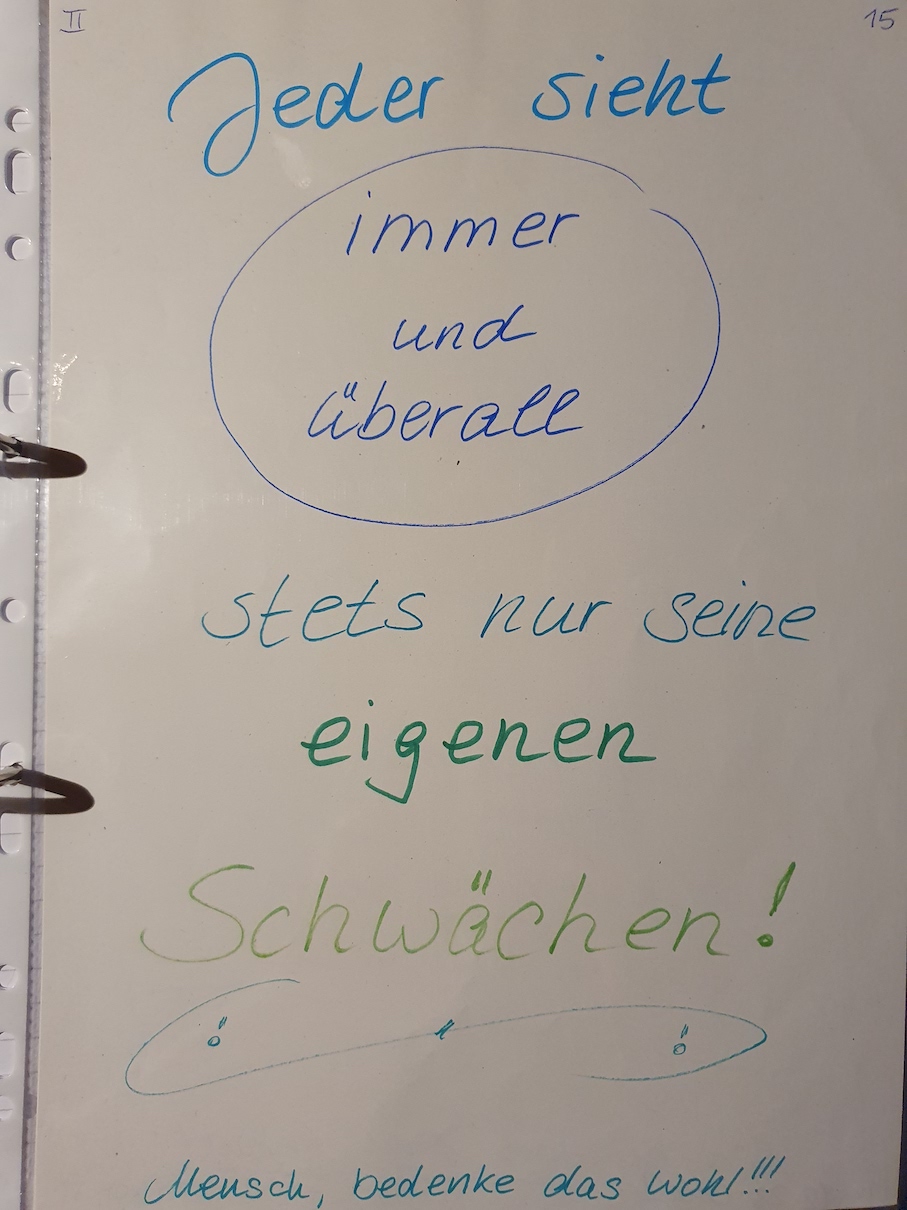 II 15
Jeder sieht
immer
und
überall
stets nur seine
eigenen
Schwächen!
Mensch, bedenke das wohl!!!